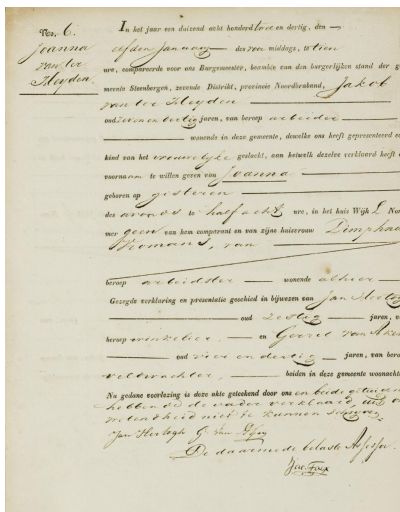 No. 6.
Joanna
van ter
Heyden.
In het jaar een duizend acht honderd twee en dertig, den
elfden January des voor middags, te tien
ure, compareerde voor ons Burgemeester, beambte van den burgerlijken stand der g
meente Steenbergen, zevende Distrikt, provincie Noordbraband, Jakob
van ter Heyden
oud zeven en dertig jaren, van beroep arbeider
wonende in deze gemeente, dewelke ons heeft gepresenteerd e
kind van het vrouwelyke geslacht, aan hetwelk dezelve verklaard heeft d
voornaam te willen geven van Joanna
geboren op gisteren
des avonds te half acht ure, in het huis Wijk L No
mer geen van hem comparant en van zijne huisvrouw Dimphna
Viomans, van
beroep arbeidster wonende alhier
Gezegde verklaring en presentatie geschied in bijwezen van Jan Hertog
oud zestig jaren, v
beroep winkelier, en Gerrel van Aken
oud vier en dertig jaren, van bero
veldwachter, beiden in deze gemeente woonacht
Na gedane voorlezing is deze akte geteekend door ons en beide getuigen
hebbende de vader verklaard, uit o
wetendheid niet te kunnen schryven
Jan Hertogh G. van
De daarmede belaste Assessor.
Jac.